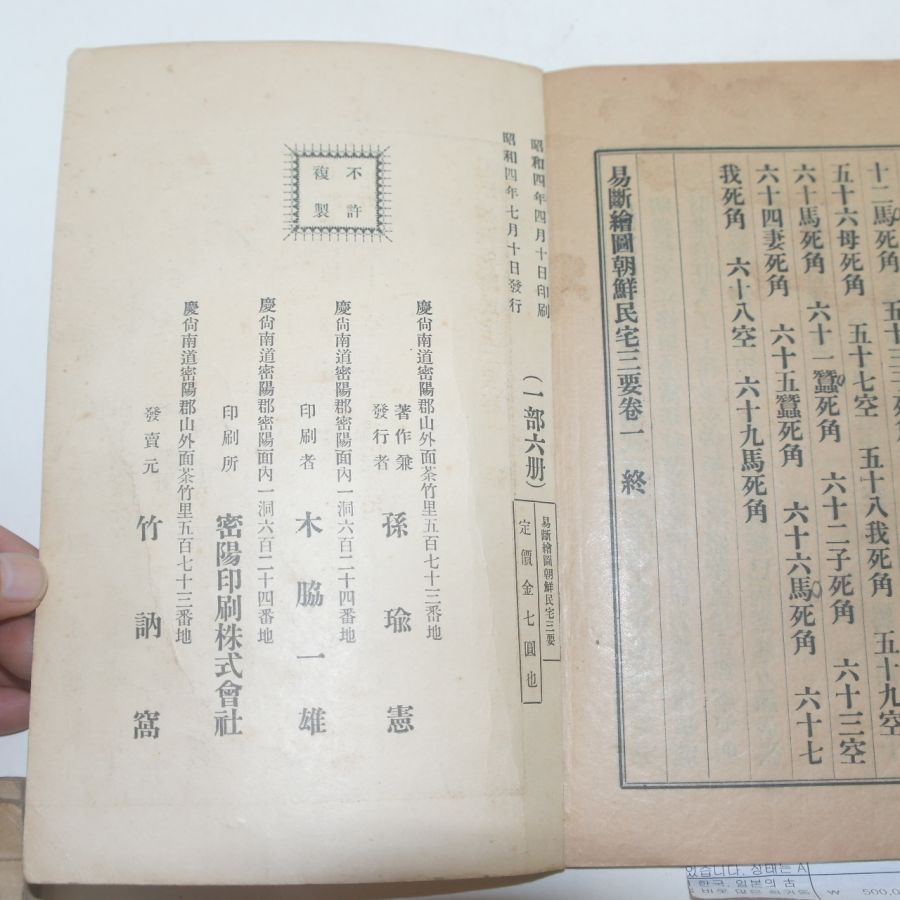 十二馬死角　五十三死
五十六母死角　五十七空　五十八我死角　五十九空
六十馬死角　六十一蠶死角　六十二子死角　六十三空
六十四妻死角　六十五蠶死角　六十六馬死角　六十七
我死角　六十八空　六十九馬死角
易斷繪圖朝鮮民宅三要卷一　終
昭和四年四月十日印刷
昭和四年七月十日發行
（一部六册）
易斷繪圖朝鮮民宅三要
定價金七圓也
不許
複製
慶尙南道密陽郡山外面茶竹里五百七十三番地
著作兼
發行者　孫瑜憲
慶尙南道密陽郡密陽面內一洞六百二十四番地
印刷者　木脇一雄
慶尙南道密陽郡密陽面內一洞六百二十四番地
印刷所　密陽印刷株式會社
慶尙南道密陽郡山外面茶竹里五百七十三番地
發賣元　竹訥窩
있습니다. 상태는 A
한국, 일본의 古
₩ 500,0